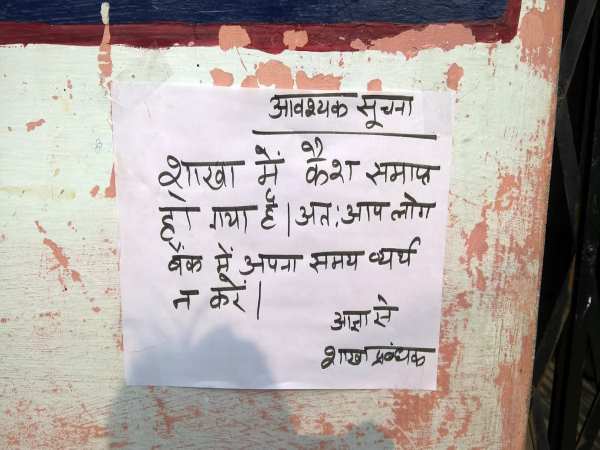 आवश्यक सूचना
शाखा में कैश समाप्त
हो गया है। अत: आप लोग
बैंक में अपना समय व्यर्थ
न करें।
आज्ञा से
शाखा प्रबंधक